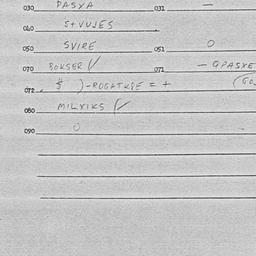 030 PASXA 031 —
040 S+VUJES
050 SVIRE 051 0
070 BOKSER √ 071 — GPASXE
072 $ )-ROGATKIE = + (GO
080 MILXIKS (✓
090 0 -